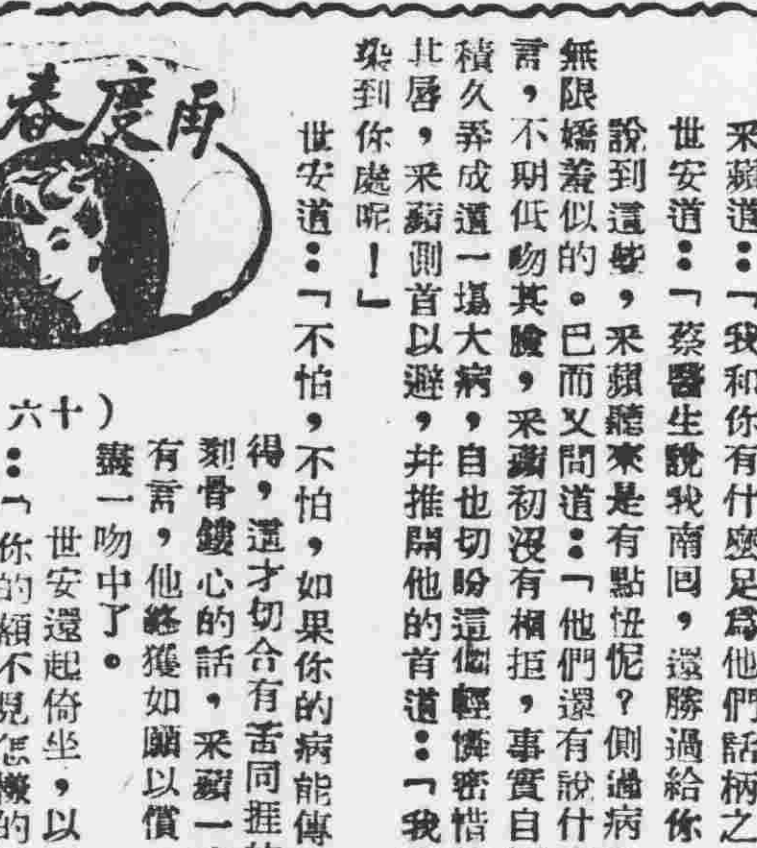 采蘋道：「我和你有什麽足爲他們話柄之
世安道：「蔡醫生說我南回，還勝過給你
說到這些，采蘋聽來是有點忸怩？側過病
無限嬌羞似的。巳而又問道：「他們還有說什
言，不期低吻其臉，采蘋初沒有相拒，事實自
積久弄成這一塲大病，自也切盼這個輕憐密惜
其唇，采蘋側首以避，幷推開他的首道：「我
染到你處呢！」
世安道：「不怕，不怕，如果你的病能傳
再度春
（十六
得，這才切合有苦同捱的
刻骨鏤心的話，采蘋一
有言，他終獲如願以償
盡一吻中了。
世安還起倚坐，以
：「你的額不見怎樣的